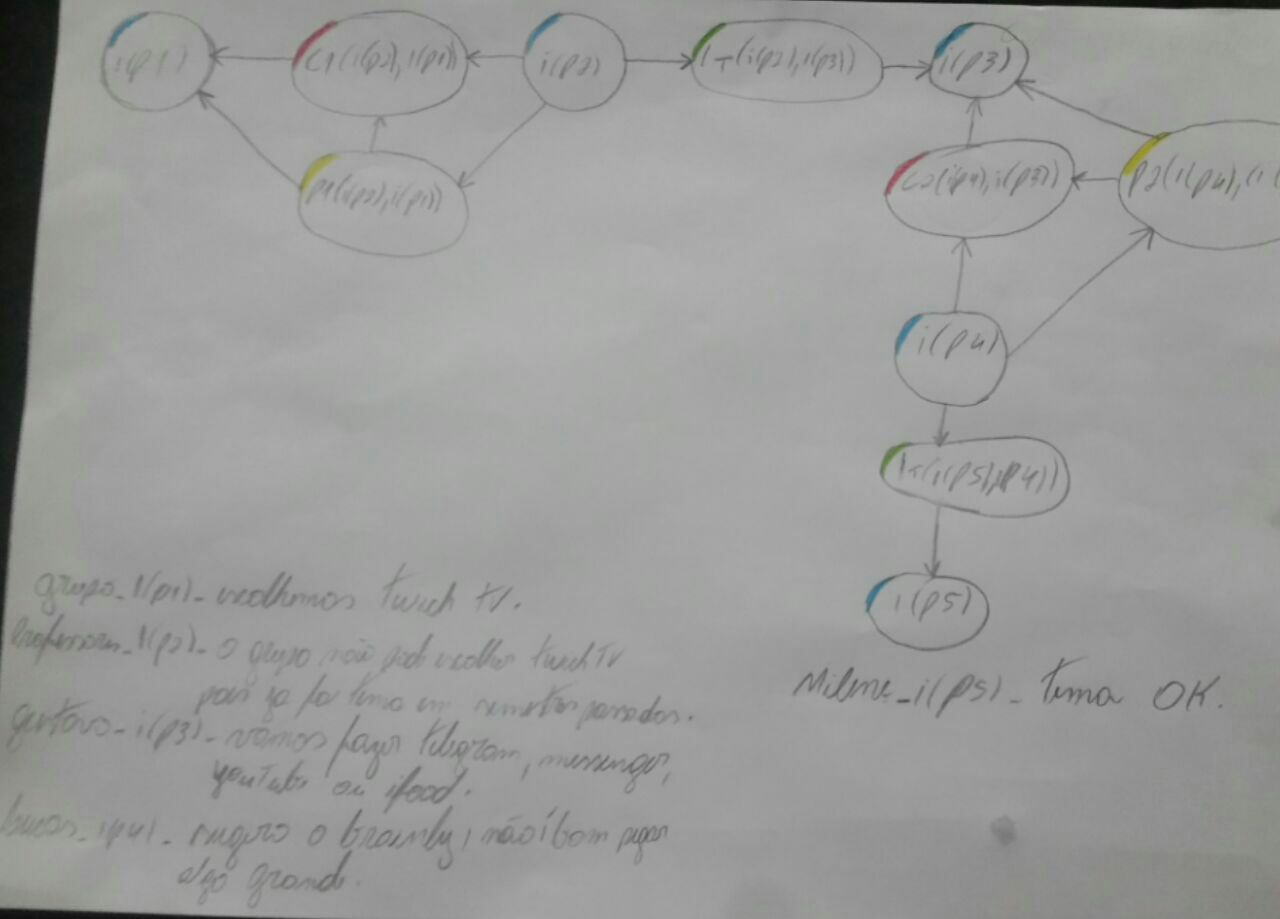 i(p1)
C1(i(p2), i(p1))
i(p2)
IT(i(p2), i(p3))
i(p3)
p1(i(p2), i(p1))
C2(i(p4), i(p3))
p2(i(p4), i(
i(p4)
IT(i(p5), i(p4))
i(p5)
grupo_i(p1)_ escolhemos twich tv.
Professora_i(p2)_ o grupo não pode escolher twich TV
pois ja foi tema em semestres passados.
gustavo_i(p3)_ vamos fazer telegram, messenger,
youtube ou ifood.
lucas_i(p4)_ sugiro o brainly, não é bom pegar
algo grande.
Milene_i(p5)_ tema OK.